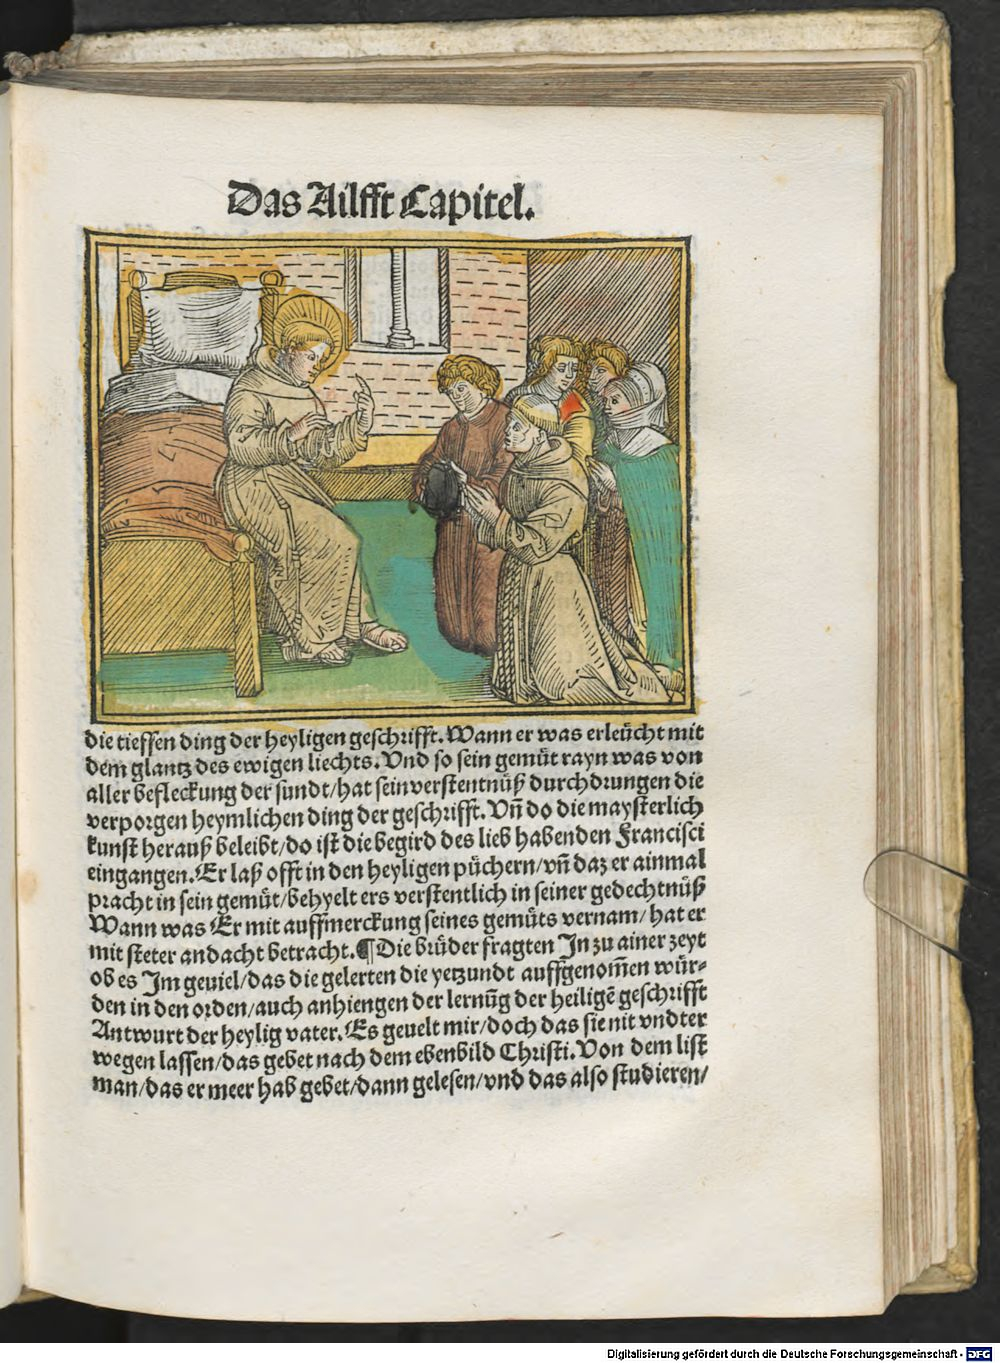 Das Ailfft Capitel.
die tieffen ding der heyligen geschrifft. Wann er was erleücht mit
dem glantz des ewigen liechts. Vnd so sein gemüt rayn was von
aller befleckung der sundt/hat sein verstentnüß durchdrungen die
verporgen heymlichen ding der geschrifft. Vn̄ do die maysterlich
kunst herauß beleibt/do ist die begird des lieb habenden Francisci
eingangen. Er laß offt in den heyligen püchern/vn̄ daz er ainmal
pracht in sein gemüt/behyelt ers verstentlich in seiner gedechtnüß
Wann was Er mit auffmerckung seines gemüts vernam/hat er
mit steter andacht betracht. ¶ Die brüder fragten In zu ainer zeyt
ob es Im geuiel/das die gelerten die yetzundt auffgenom̄en wür-
den in den orden/auch anhiengen der lernūg der heiligē geschrifft
Antwurt der heylig vater. Es geuelt mir/doch das sie nit vndter
wegen lassen/das gebet nach dem ebenbild Christi. Von dem list
man/das er meer hab gebet/dann gelesen/vnd das also studieren/
Digitalisierung gefördert durch die Deutsche Forschungsgemeinschaft - DFG